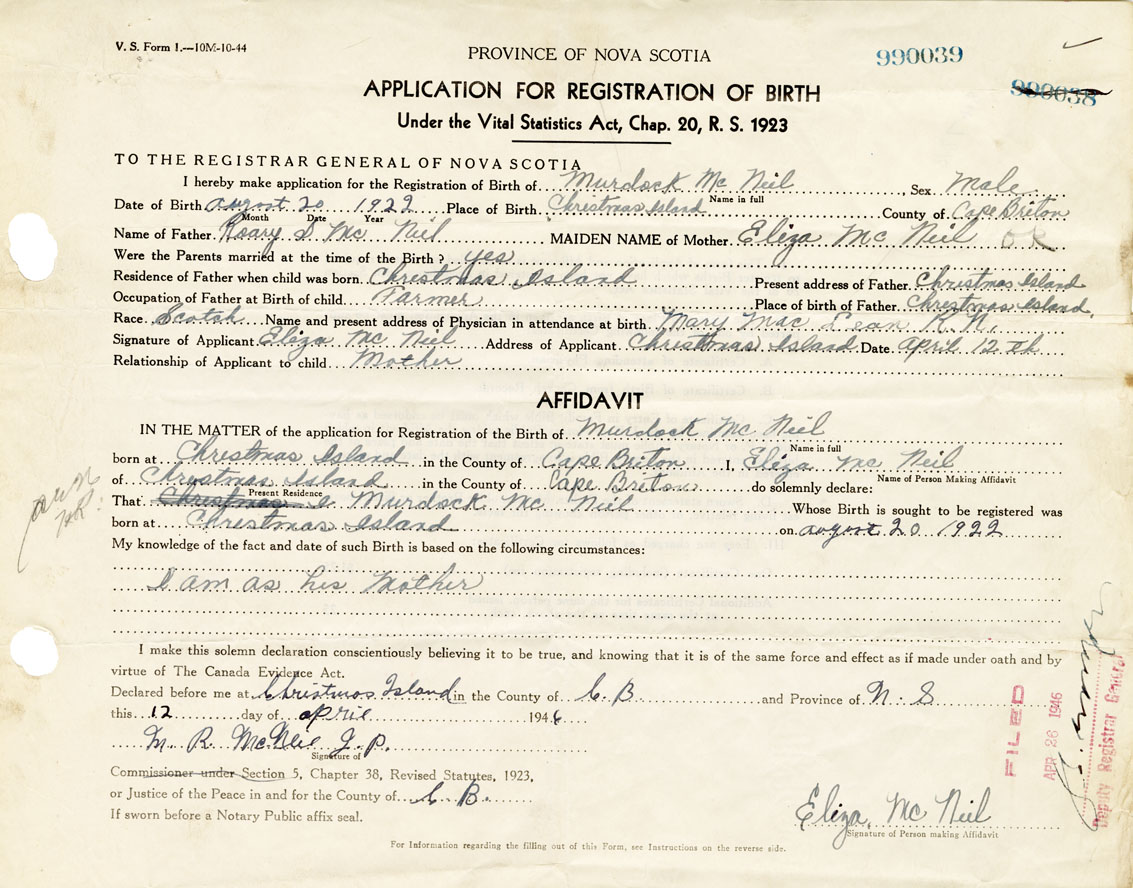 V. S. Form 1.—10M-10-44
PROVINCE OF NOVA SCOTIA
990039
990038
APPLICATION FOR REGISTRATION OF BIRTH
Under the Vital Statistics Act, Chap. 20, R. S. 1923
TO THE REGISTRAR GENERAL OF NOVA SCOTIA
I hereby make application for the Registration of Birth of Murdock Mc Neil, Sex Male
Name in full
Date of Birth August 20 1922 Place of Birth Christmas Island County of Cape Briton
Month Date Year
Name of Father Roary S Mc Neil MAIDEN NAME of Mother Eliza Mc Neil OK
Were the Parents married at the time of the Birth? yes
Residence of Father when child was born Christmas Island Present address of Father Christmas Island
Occupation of Father at Birth of child Farmer Place of birth of Father Christmas Island,
Race Scotch Name and present address of Physician in attendance at birth Mary Mac Lean R. N.
Signature of Applicant Eliza Mc Neil Address of Applicant Christmas Island Date April 12 th
Relationship of Applicant to child Mother
AFFIDAVIT
IN THE MATTER of the application for Registration of the Birth of Murdock Mc Neil
Name in full
born at Christmas Island in the County of Cape Briton I, Eliza Mc Neil
Name of Person Making Affidavit
of Christmas Island in the County of Cape Briton do solemnly declare:
Present Residence
That Christmas Is Murdock Mc Neil Whose Birth is sought to be registered was
born at Christmas Island on August 20 1922
My knowledge of the fact and date of such Birth is based on the following circumstances:
I am as his Mother
I make this solemn declaration conscientiously believing it to be true, and knowing that it is of the same force and effect as if made under oath and by
virtue of The Canada Evidence Act.
Declared before me at Christmas Island in the County of C. B and Province of N. S
this 12 day of April 1946
M. R. McNeil J. P.
Signature of
Commissioner under Section 5, Chapter 38, Revised Statutes, 1923,
or Justice of the Peace in and for the County of C. B.
If sworn before a Notary Public affix seal.
Eliza Mc Neil
Signature of Person making Affidavit
For Information regarding the filling out of this Form, see Instructions on the reverse side.
FILED
APR 26 1946
Deputy Registrar General